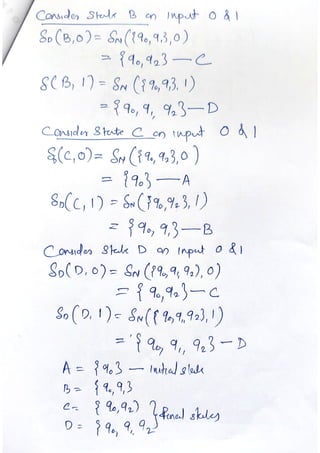 Consider State B on input 0 & 1
S_D(B,0) = S_N({q0,q1},0)
= {q0,q2} — C
S(B, 1) = S_N({q0,q1}, 1)
= {q0, q1, q2} — D
Consider State C on input 0 & 1
S(C,0) = S_N({q0,q2},0)
= {q0} — A
S_D(C, 1) = S_N({q0,q2}, 1)
= {q0, q1} — B
Consider State D on input 0 & 1
S_D(D, 0) = S_N({q0,q1,q2), 0)
= {q0,q2} — C
S_D(D, 1) = S_N({q0,q1,q2}, 1)
= {q0, q1, q2} — D
A = {q0} — Initial state
B = {q0,q1}
C = {q0,q2)
D = {q0,q1,q2} } final states